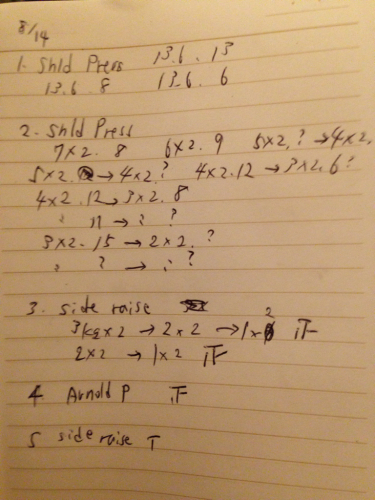 8/14
1. Shld Press 13.6. 13
13.6 8 13.6. 6
2. Shld Press
7x2. 8 6x2. 9 5x2. ? → 4x2.
5x2. → 4x2. ? 4x2.12 → 3x2. 6?
4x2. 12 → 3x2. 8
" 11 → ? ?
3x2. 15 → 2x2. ?
" ? → " ?
3. side raise
3kgx2 → 2x2 → 1x2
2x2 → 1x2
4 Arnold P
5 side raise T